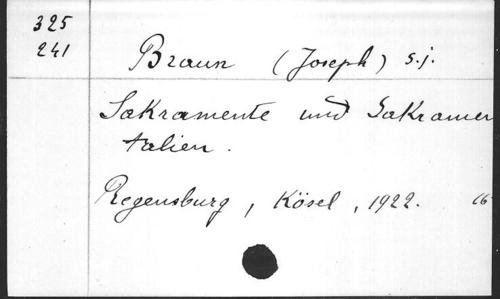 325
241
Braun (Joseph) S.j.
Sakramente und Sakramen
talien.
Regensburg, Kösel, 1922. 16